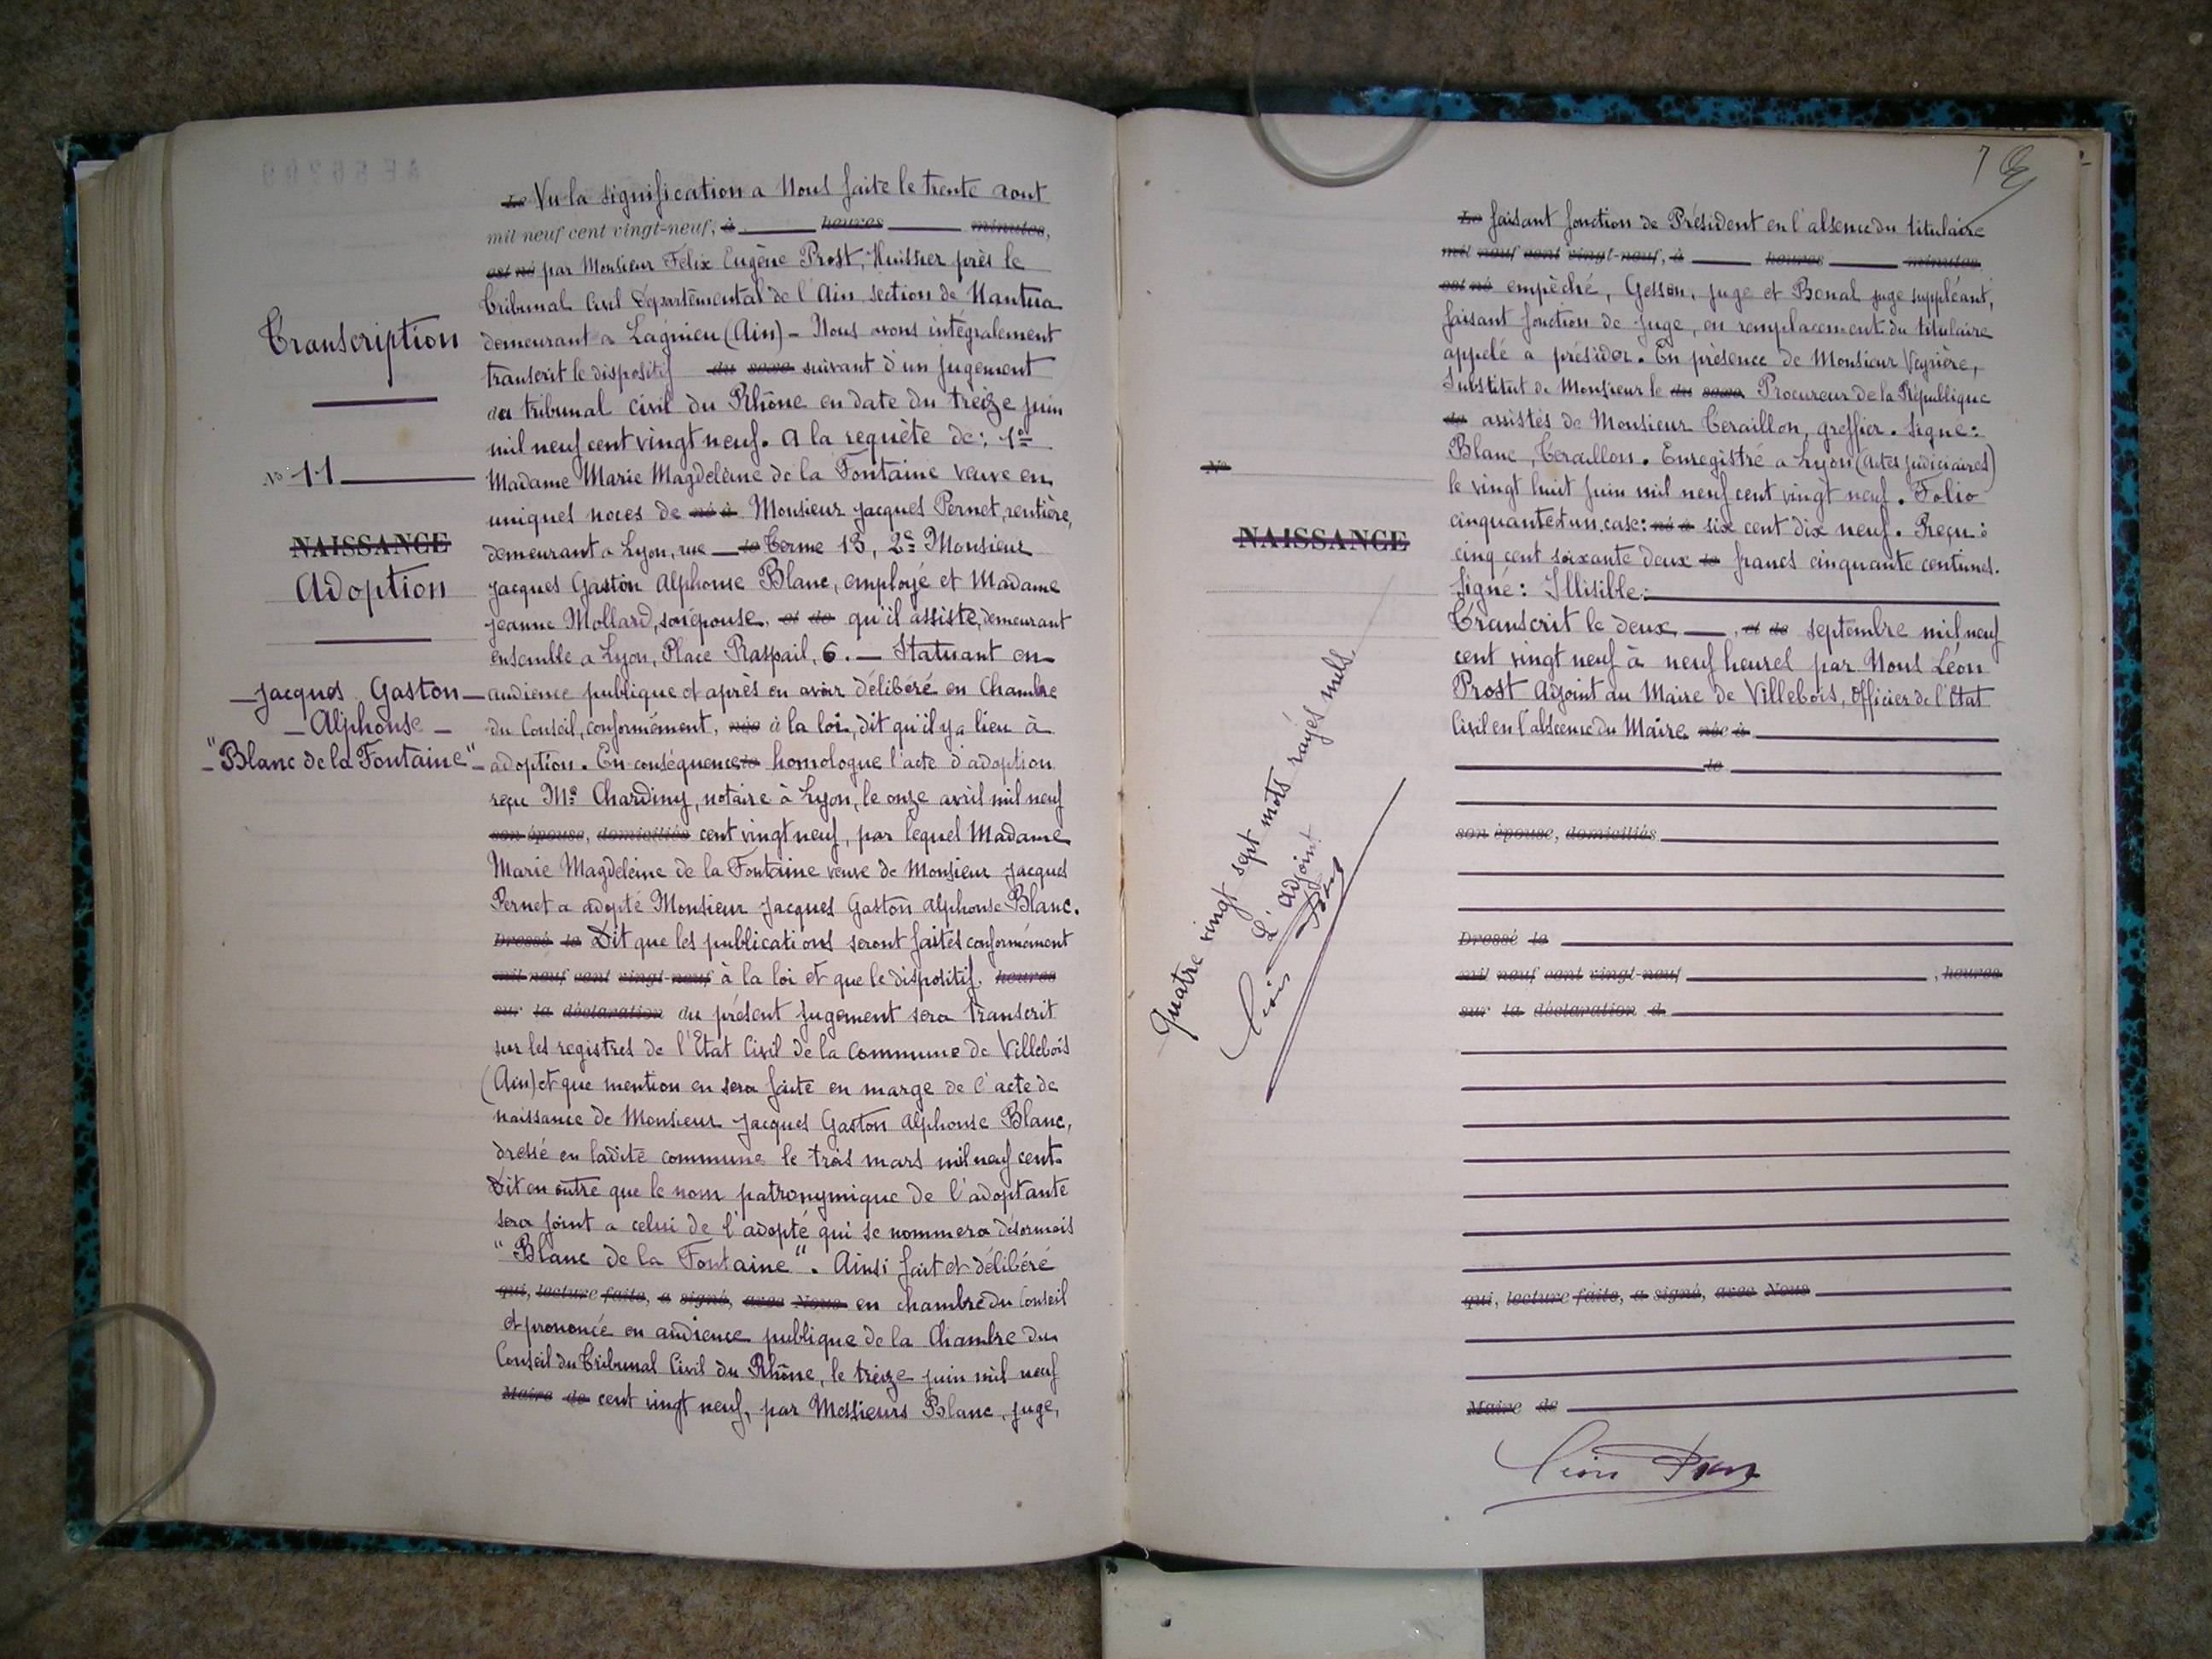 Transcription
N° 11
NAISSANCE
Adoption
Jacques Gaston
Alphonse
"Blanc de la Fontaine"
Le Vu la signification a Nous faite le trente aout
mil neuf cent vingt-neuf, à heures minutes,
est né par Monsieur Félix Eugène Prost, Huissier près le
Tribunal Civil Départemental de l'Ain section de Nantua
demeurant a Lagnieu (Ain) - Nous avons intégralement
transcrit le dispositif du sexe suivant d'un jugement
du tribunal civil du Rhône en date du treize juin
mil neuf cent vingt neuf. A la requête de: 1°
Madame Marie Magdeleine de la Fontaine veuve en
uniques noces de né à Monsieur Jacques Pernet, rentière,
demeurant a Lyon, rue le Terme 13, 2° Monsieur
Jacques Gaston Alphonse Blanc, employé et Madame
Jeanne Mollard, son épouse, et de qu'il assiste, demeurant
ensemble a Lyon, Place Raspail, 6. — Statuant en
audience publique et après en avoir délibéré en Chambre
du Conseil, conformément, née à la loi, dit qu'il y a lieu à
adoption. En conséquence le homologue l'acte d'adoption
reçu Me Chardiny, notaire à Lyon, le onze avril mil neuf
son épouse, domiciliés cent vingt neuf, par lequel Madame
Marie Magdeleine de la Fontaine veuve de Monsieur Jacques
Pernet a adopté Monsieur Jacques Gaston Alphonse Blanc.
Dressé le Dit que les publications seront faites conformément
mil neuf cent vingt-neuf à la loi et que le dispositif, heures
sur la déclaration du présent jugement sera transcrit
sur les registres de l'Etat Civil de la Commune de Villebois
(Ain) et que mention en sera faite en marge de l'acte de
naissance de Monsieur Jacques Gaston Alphonse Blanc,
dressé en ladite commune le trois mars mil neuf cent.
Dit en outre que le nom patronymique de l'adoptante
sera joint a celui de l'adopté qui se nommera désormais
"Blanc de la Fontaine". Ainsi fait et délibéré
qui, lecture faite, a signé, avec Nous en chambre du Conseil
et prononcé en audience publique de la Chambre du
Conseil du Tribunal Civil du Rhône, le treize juin mil neuf
Maire de cent vingt neuf, par Messieurs Blanc, juge,
7
N°
NAISSANCE
Quatre vingt sept mots rayés nuls.
L'adjoint
Léon Prost
Le faisant fonction de Président en l'absence du titulaire
mil neuf cent vingt-neuf, à heures minutes,
est né empêché, Gesson, juge et Bonal juge suppléant,
faisant fonction de juge, en remplacement du titulaire
appelé a présider. En présence de Monsieur Veyrière,
Substitut de Monsieur le du sexe Procureur de la République
de assistés de Monsieur Teraillon, greffier. Signé:
Blanc, Teraillon. Enregistré a Lyon (actes judiciaires)
le vingt huit juin mil neuf cent vingt neuf. Folio
cinquante et un, case: né à six cent dix neuf. Reçu:
cinq cent soixante deux le francs cinquante centimes.
Signé: Illisible.
Transcrit le deux, et de septembre mil neuf
cent vingt neuf à neuf heures par Nous Léon
Prost Adjoint au Maire de Villebois, Officier de l'Etat
Civil en l'absence du Maire née à
le
son épouse, domiciliés
Dressé le
mil neuf cent vingt-neuf, heures
sur la déclaration d
qui, lecture faite, a signé, avec Nous
Maire de
Léon Prost